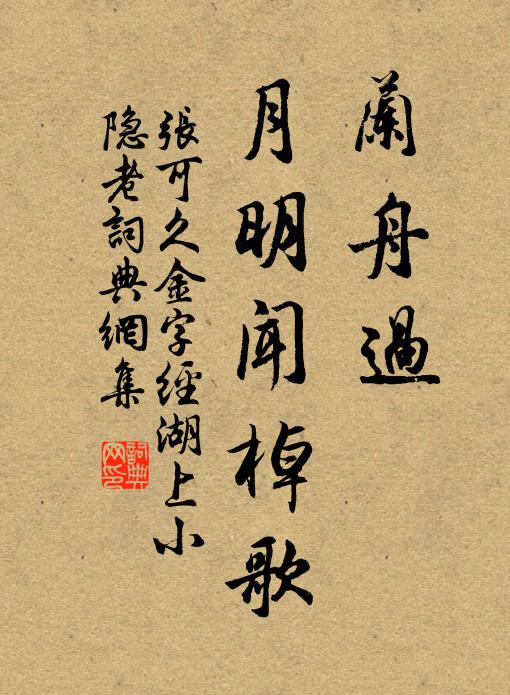 蘭舟過
月明聞棹歌
張可久金字經湖上小
隐老詞典網集
詞典
网印